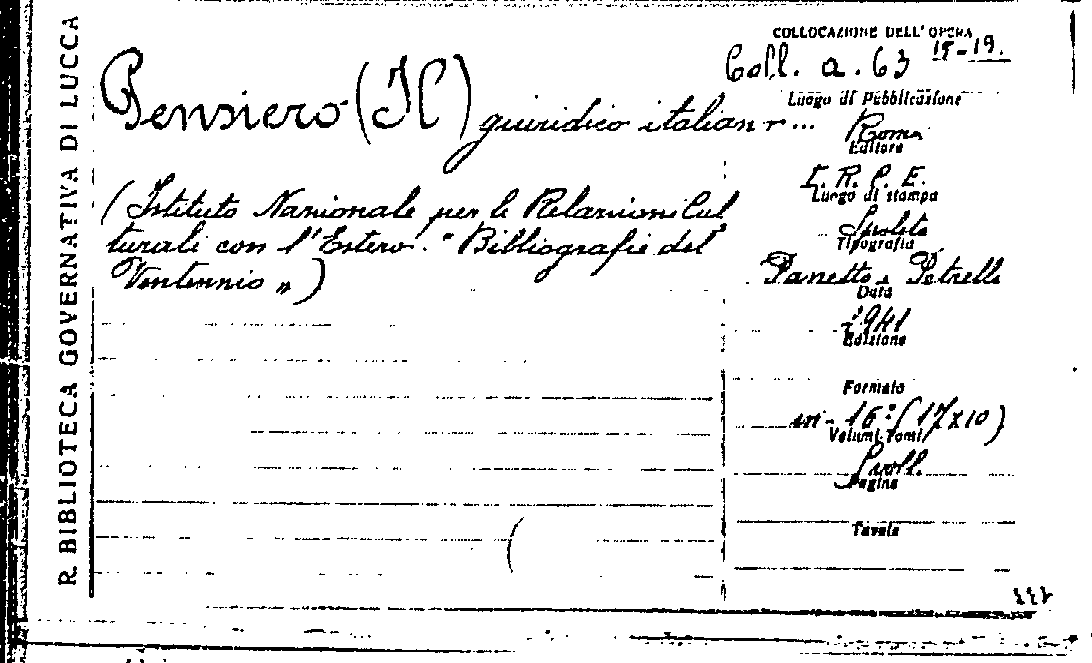 R. BIBLIOTECA GOVERNATIVA DI LUCCA
COLLOCAZIONE DELL'OPERA
Coll. a. 63 15-19.
Pensiero (Il) giuridico italiano...
(Istituto Nazionale per le Relazioni Cul
turali con l'Estero. "Bibliografie del
Ventennio")
Luogo di Pubblicazione
Roma
Editore
I. R. C. E.
Luogo di stampa
Spoleto
Tipografia
Panetto e Petrelli
Data
1941
Edizione
Formato
in-16° (17x10)
Volumi-Tomi
voll.
Pagine
Tavole